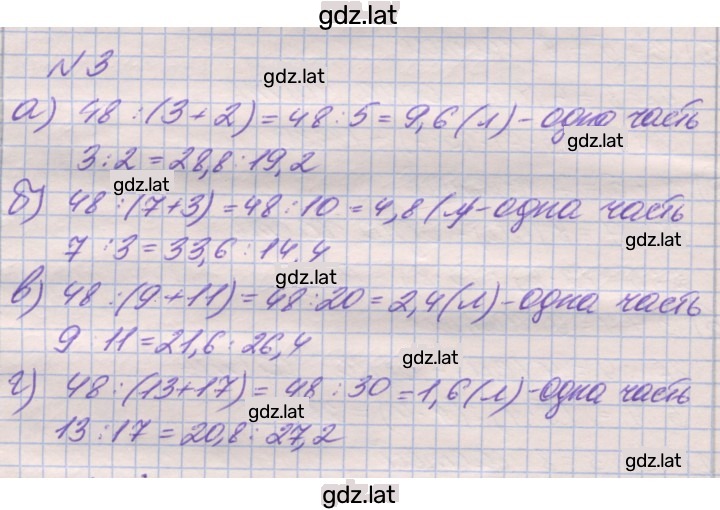 gdz.lat
№ 3
gdz.lat
а) 48 : (3+2) = 48 : 5 = 9,6 (л) - одна часть
gdz.lat
3 : 2 = 28,8 : 19,2
gdz.lat
б) 48 : (7+3) = 48 : 10 = 4,8 (л) - одна часть
gdz.lat
7 : 3 = 33,6 : 14.4
gdz.lat
в) 48 : (9+11) = 48 : 20 = 2,4 (л) - одна часть
9 : 11 = 21,6 : 26,4
gdz.lat
г) 48 : (13+17) = 48 : 30 = 1,6 (л) - одна часть
gdz.lat
13 : 17 = 20,8 : 27,2
gdz.lat
gdz.lat